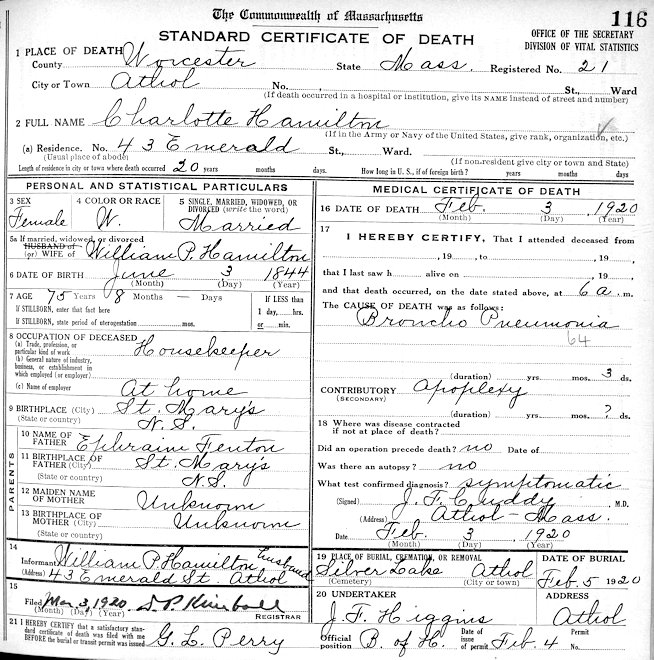 The Commonwealth of Massachusetts
116
STANDARD CERTIFICATE OF DEATH
OFFICE OF THE SECRETARY
DIVISION OF VITAL STATISTICS
1 PLACE OF DEATH
County Worcester State Mass. Registered No. 21
City or Town Athol No. , St., Ward
(If death occurred in a hospital or institution, give its NAME instead of street and number)
2 FULL NAME Charlotte Hamilton
(If in the Army or Navy of the United States, give rank, organization, etc.)
(a) Residence. No. 43 Emerald St., Ward.
(Usual place of abode) (If non-resident give city or town and State)
Length of residence in city or town where death occurred 20 years months days. How long in U. S., if of foreign birth? years months days
PERSONAL AND STATISTICAL PARTICULARS
3 SEX Female
4 COLOR OR RACE W.
5 SINGLE, MARRIED, WIDOWED, OR DIVORCED (write the word) Married
5a If married, widowed, or divorced
HUSBAND of
(or) WIFE of William P. Hamilton
6 DATE OF BIRTH June 3 1844
(Month) (Day) (Year)
7 AGE 75 Years 8 Months — Days
If LESS than
1 day,......hrs.
or......min.
If STILLBORN, enter that fact here
If STILLBORN, state period of uterogestation mos.
8 OCCUPATION OF DECEASED
(a) Trade, profession, or particular kind of work Housekeeper
(b) General nature of industry, business, or establishment in which employed (or employer)
(c) Name of employer At home
9 BIRTHPLACE (City) St. Mary's
(State or country) N.S.
PARENTS
10 NAME OF FATHER Ephraim Fenton
11 BIRTHPLACE OF FATHER (City) St. Mary's
(State or country) N.S.
12 MAIDEN NAME OF MOTHER Unknown
13 BIRTHPLACE OF MOTHER (City) Unknown
(State or country)
14
Informant William P. Hamilton husband
(Address) 43 Emerald St Athol
15
Filed Mar 3, 1920 D. P. Kimball
(Month) (Day) (Year) REGISTRAR
MEDICAL CERTIFICATE OF DEATH
16 DATE OF DEATH Feb. 3 1920
(Month) (Day) (Year)
17
I HEREBY CERTIFY, That I attended deceased from
, 19 , to , 19 ,
that I last saw h alive on , 19 ,
and that death occurred, on the date stated above, at 6 a. m.
The CAUSE OF DEATH was as follows:
Broncho Pneumonia
64
(duration) yrs. mos. 3 ds.
CONTRIBUTORY Apoplexy
(SECONDARY)
(duration) yrs. mos. ? ds.
18 Where was disease contracted
if not at place of death?
Did an operation precede death? no Date of
Was there an autopsy? no
What test confirmed diagnosis? symptomatic
(Signed) J. F. Cuddy M.D.
(Address) Athol - Mass.
Date Feb. 3 , 1920
(Month) (Day) (Year)
19 PLACE OF BURIAL, CREMATION, OR REMOVAL
Silver Lake Athol
(Cemetery) (City or town)
DATE OF BURIAL
Feb. 5 1920
20 UNDERTAKER
J. F. Higgins
ADDRESS
Athol
21 I HEREBY CERTIFY that a satisfactory standard certificate of death was filed with me BEFORE the burial or transit permit was issued G. L. Perry
Official position B. of H. Date of issue of permit Feb. 4 Permit No.